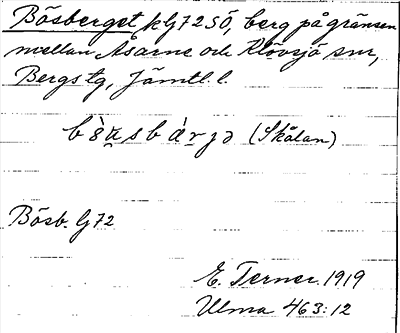 Bösberget kG72SÖ, berg på gränsen
mellan Åsarne och Klövsjö snr,
Bergs tg, Jämtl. l.
(Skålan)
Bösb. G72
E. Terner. 1919
Ulma 463:12